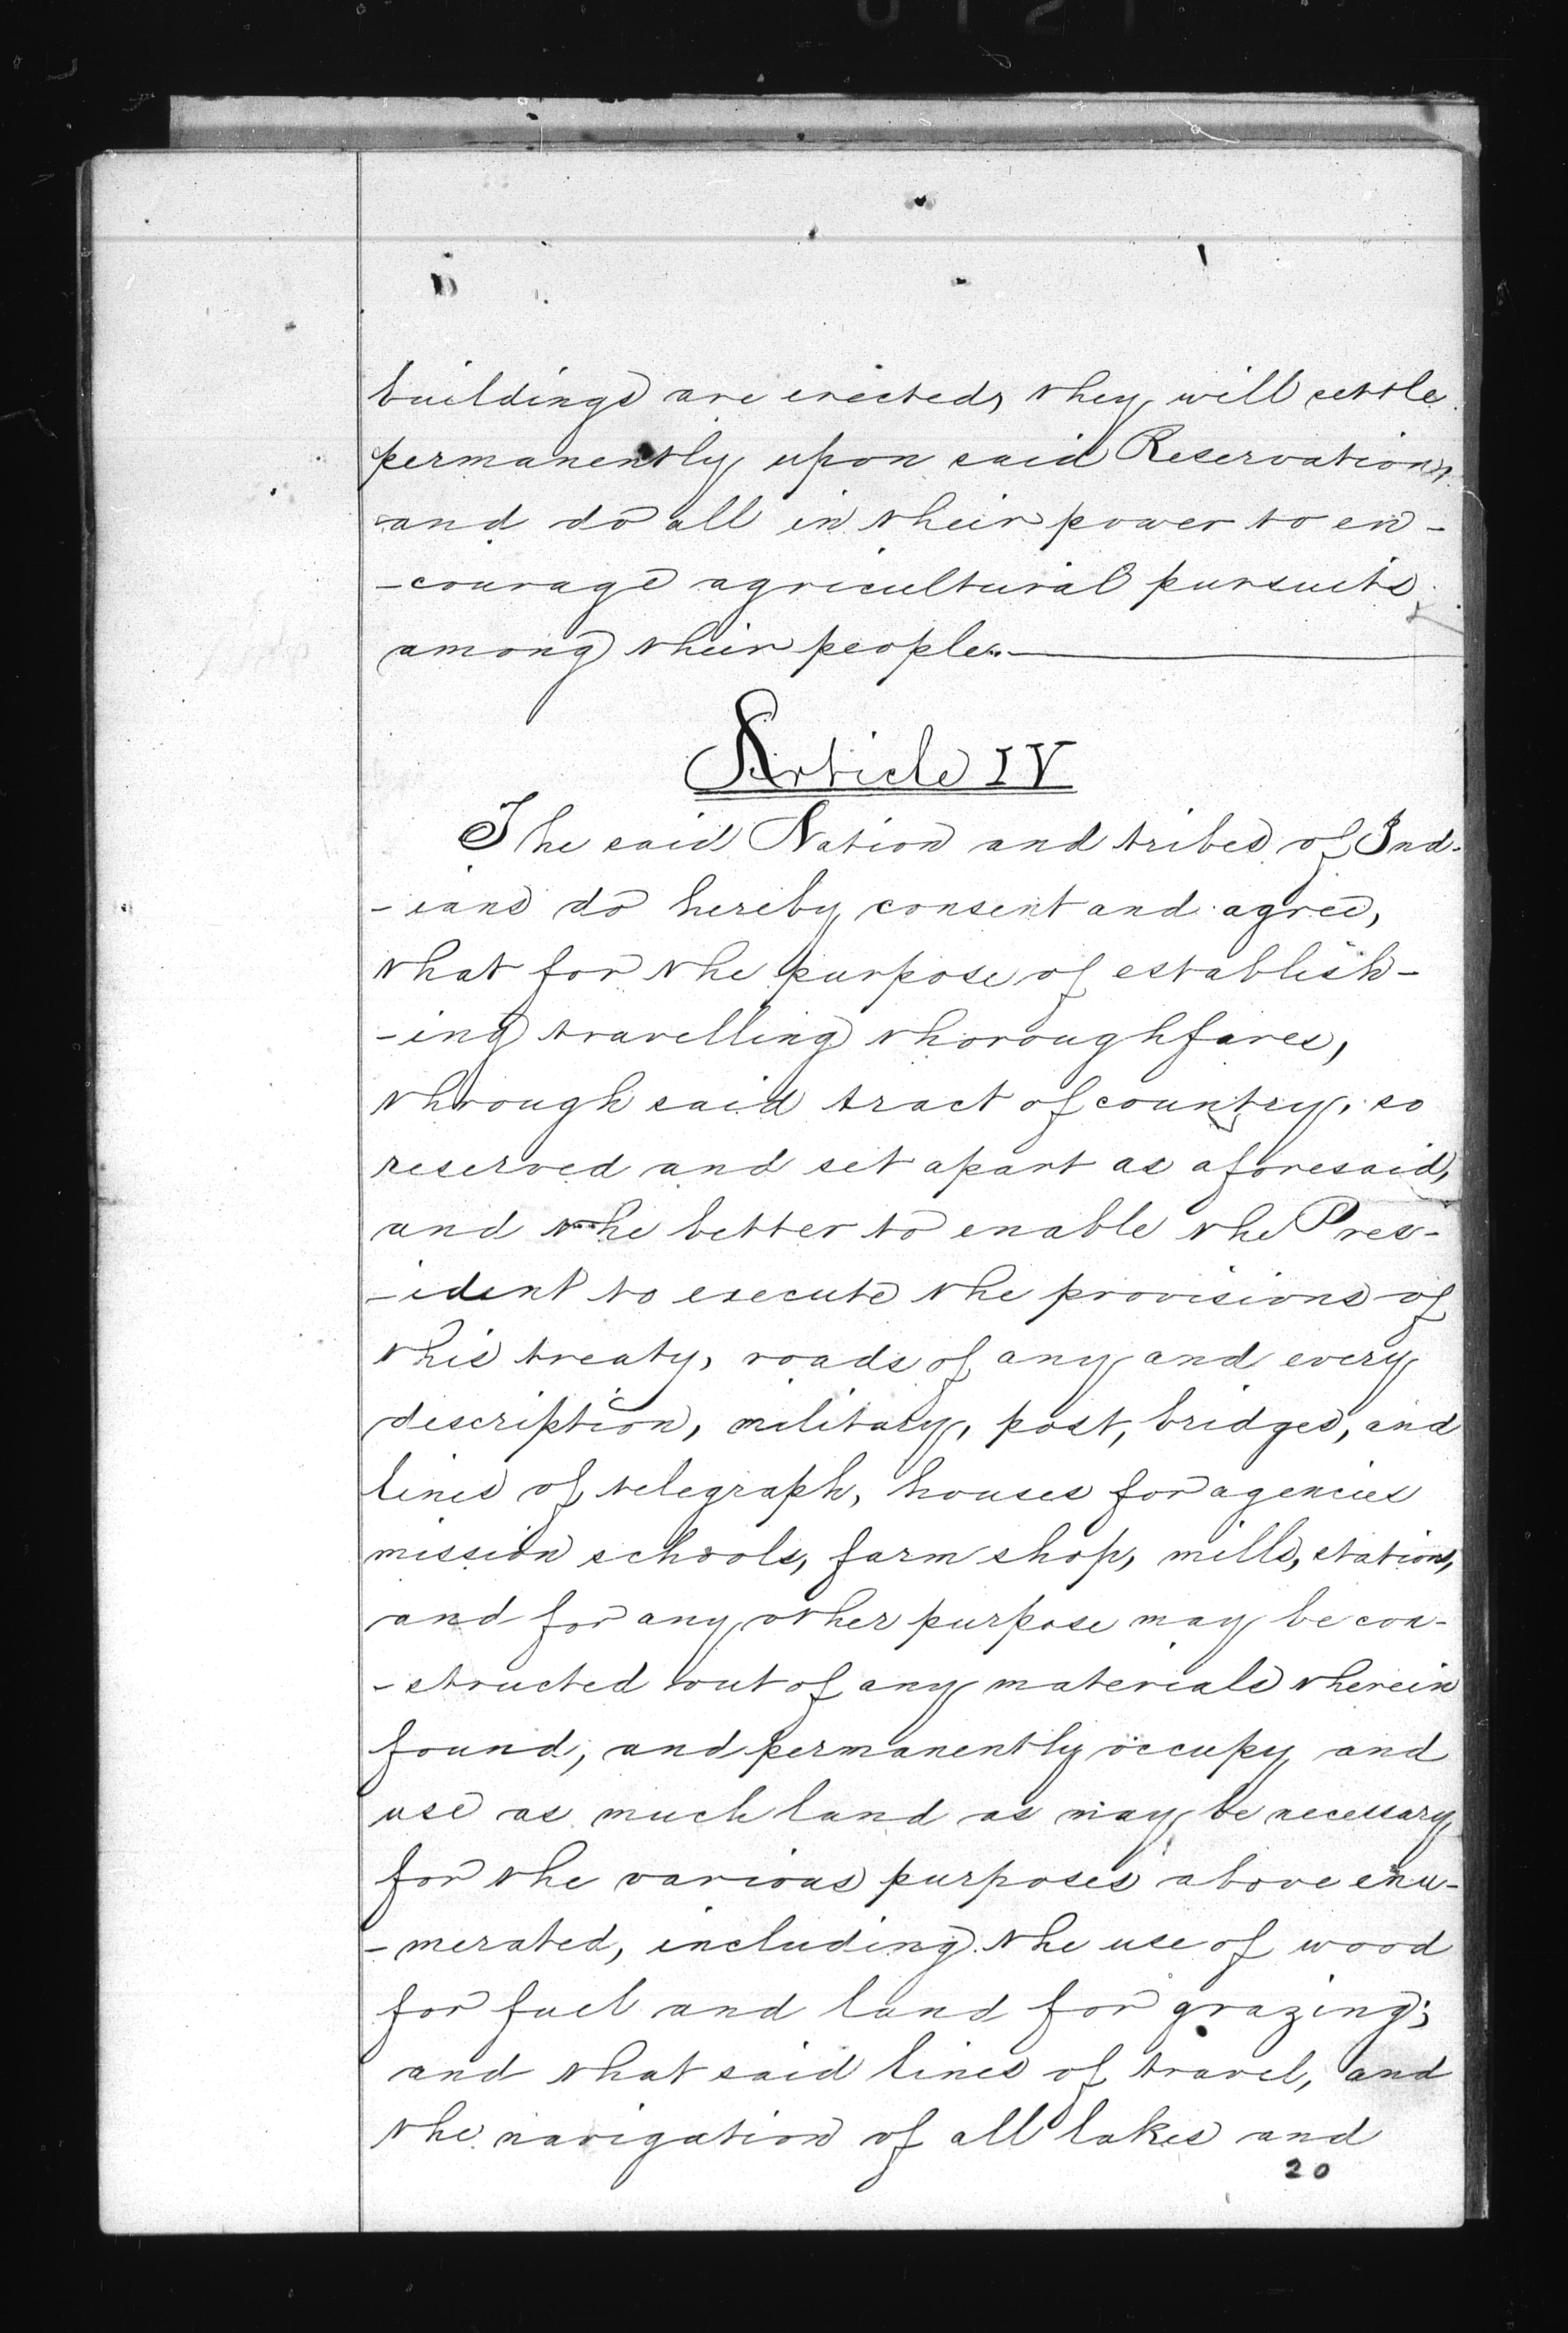 buildings are erected, they will settle
permanently upon said Reservation,
and do all in their power to en-
-courage agricultural pursuits
among their people.
Article IV
The said Nation and tribes of Ind-
-ians do hereby consent and agree,
that for the purpose of establish-
-ing travelling thoroughfares,
through said tract of country, so
reserved and set apart as aforesaid,
and the better to enable the Pres-
-ident to execute the provisions of
this treaty, roads of any and every
description, military, post, bridges, and
lines of telegraph, houses for agencies
mission schools, farm shop, mills, stations,
and for any other purpose may be con-
-structed out of any materials therein
found, and permanently occupy and
use as much land as may be necessary
for the various purposes above enu-
-merated, including the use of wood
for fuel and land for grazing;
and that said lines of travel, and
the navigation of all lakes and
20